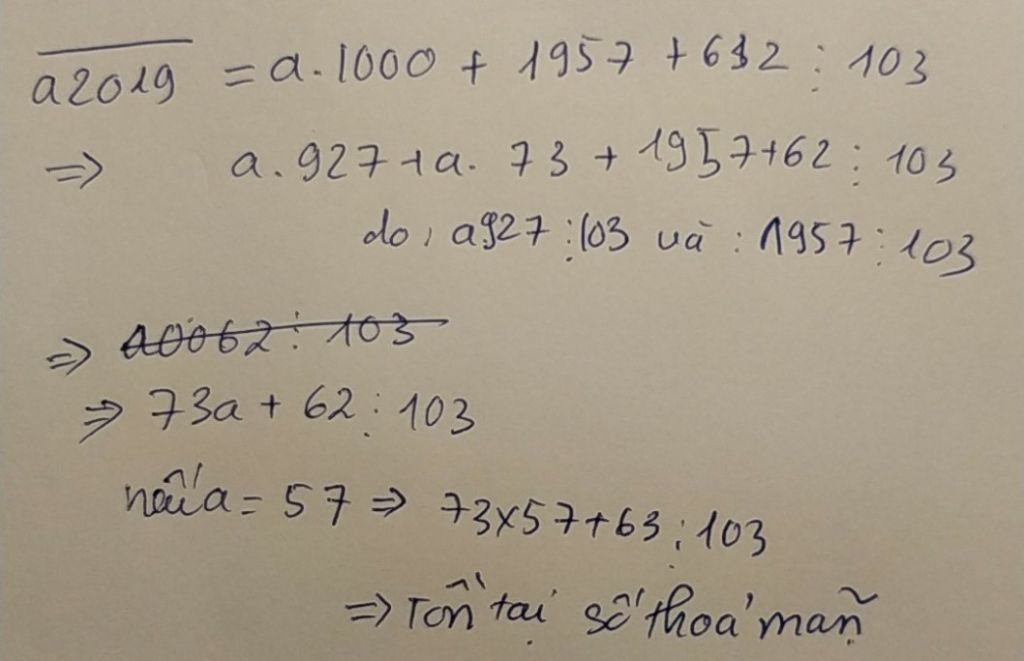 a2019 = a.1000 + 1957 + 632 ⋮ 103
⇒ a.927+a. 73 + 1957+62 ⋮ 103
do, a927 ⋮ 103 và : 1957 ⋮ 103
⇒ a0062 ⋮ 103
⇒ 73a + 62 ⋮ 103
nếu a = 57 ⇒ 73x57+63 ⋮ 103
⇒ Tồn tại số thoả mãn